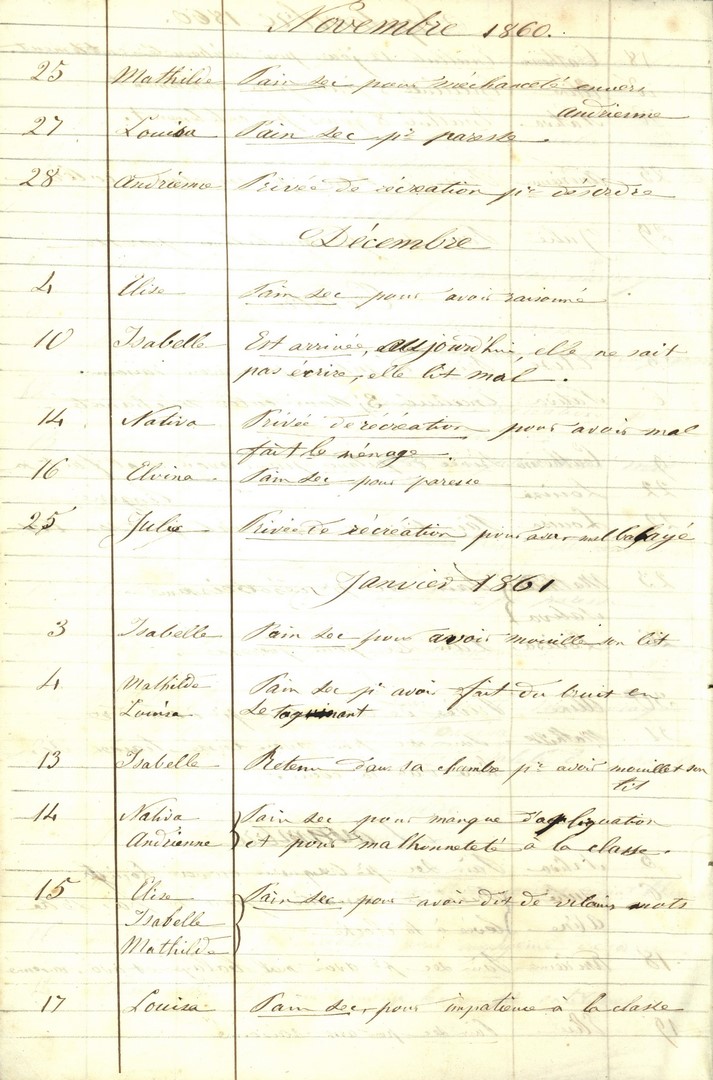 Novembre 1860.
25 Mathilde Pain sec pour méchanceté envers
Andrienne
27 Louisa Pain sec pr paresse.
28 Andrienne Privée de récréation pr désordre
Décembre
4 Elise Pain sec pour avoir raisonné
10 Isabelle Est arrivée, aujourd'hui, elle ne sait
pas écrire, elle lit mal.
14 Nativa Privée de récréation pour avoir mal
fait le ménage.
16 Elvina Pain sec pour paresse
25 Julie Privée de récréation pour avoir mal balayé
Janvier 1861
3 Isabelle Pain sec pour avoir mouillé son lit
4 Mathilde Pain sec pr avoir fait du bruit en
Louisa se taquinant
13 Isabelle Retenu dans sa chambre pr avoir mouillet son
lit
14 Nativa Pain sec pour manque d'apliquation
Andrienne et pour malhonneteté à la classe.
15 Elise Pain sec pour avoir dit de vilains mots
Isabelle
Mathilde
17 Louisa Pain sec, pour impatience à la classe